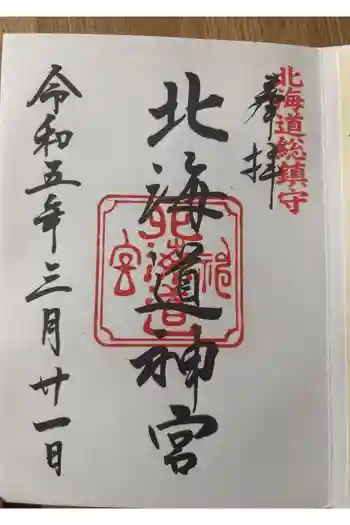 北海道総鎮守
奉拝
北海道神宮
令和五年三月廿一日